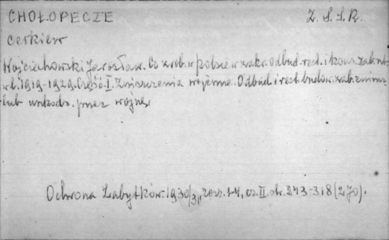 CHOŁOPECZE Z.S.S.R.
cerkiew
Wojciechowski Jarosław. Co zrob. w Polsce w zakr. odbud. rest. i kons. zabyt.
w l. 1919-1929. Część I. Zniszczenia wojenne. Odbud. i rest. budow. zab. zniszcz.
lub uszkodz. przez wojnę
Ochrona Zabytków 1930/31, zesz. 1-4, cz. II. str. 243-318 (270).